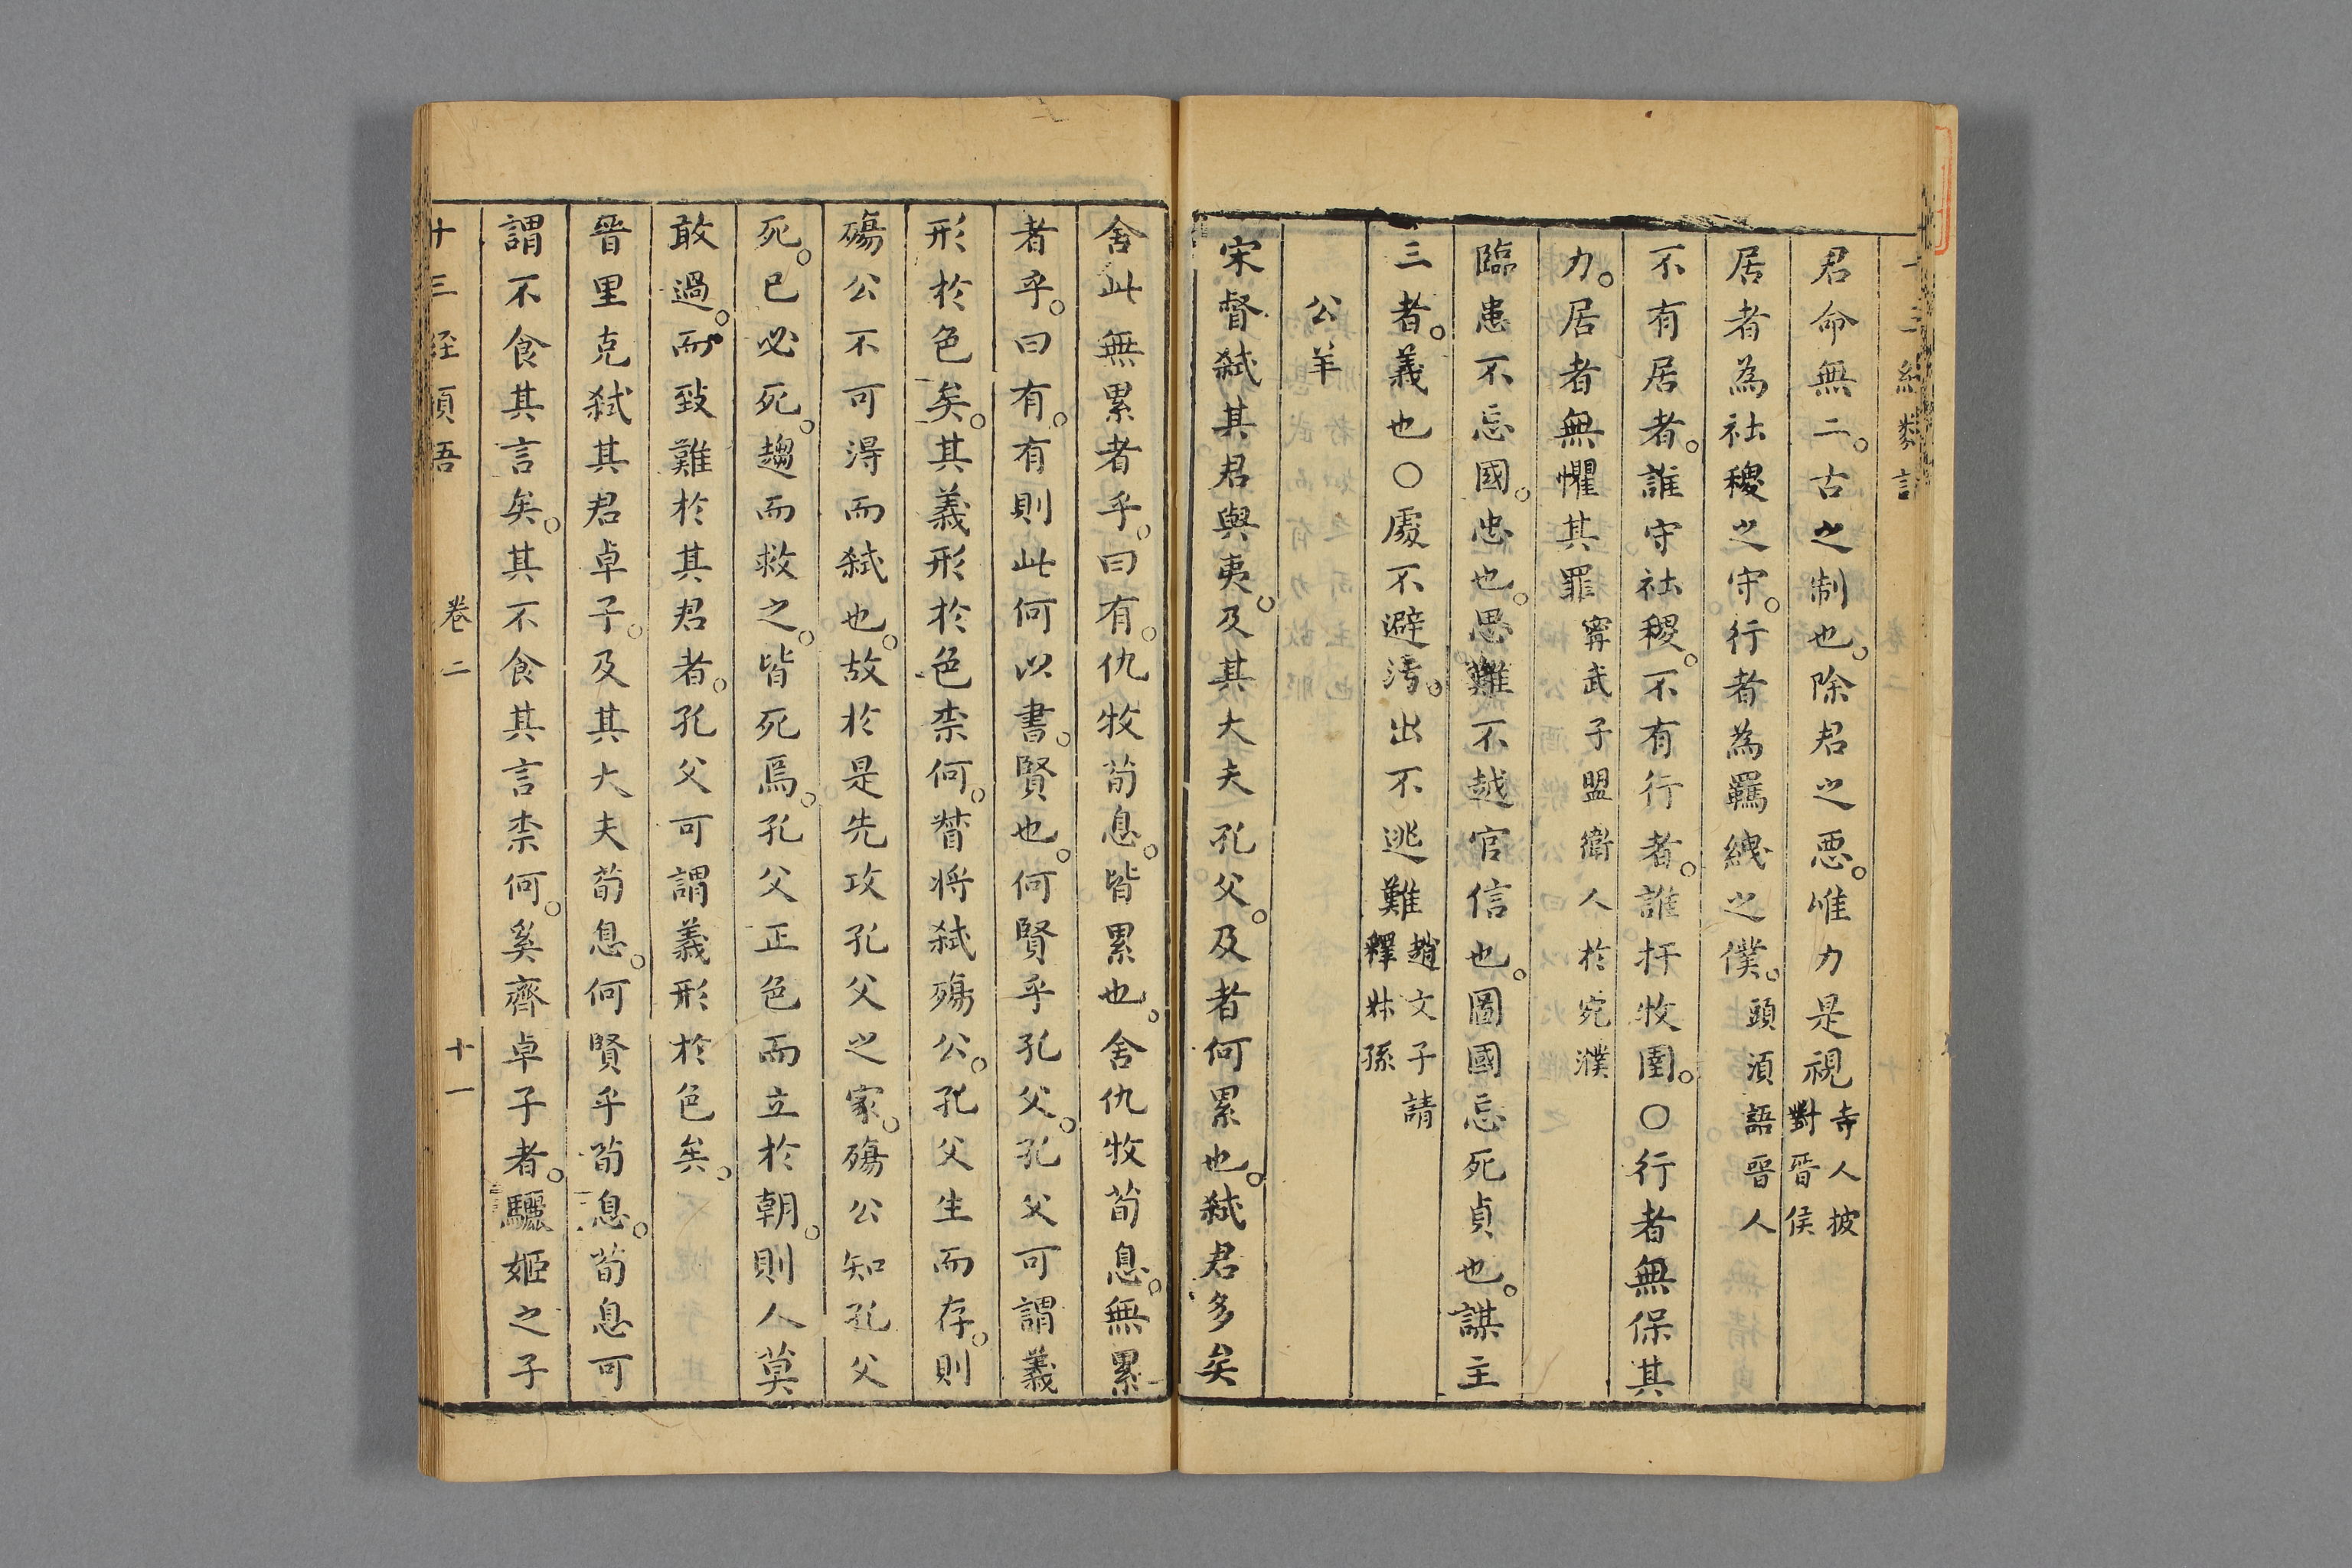 十三經類語
君命無二。古之制也。除君之悪。惟力是視寺人披對晉侯
居者為社稷之守。行者為羈絏之僕。頭湏語晉人
不有居者。誰守社稷。不有行者。誰扞牧圉。○行者無保其
力。居者無懼其罪寗武子盟衛人於宛濮
臨患不忘國。忠也。思難不越官信也。圖國忘死貞也。謀主
三者。義也○處不避汚。出不逃難趙文子請釋叔孫
公羊
宋督弑其君與夷。及其大夫孔父。及者何累也。弑君多矣
舍此無累者乎。曰有。仇牧荀息。皆累也。舍仇牧荀息。無累
者乎。曰有。有則此何以書。賢也。何賢乎孔父。孔父可謂義
形於色矣。其義形於色柰何。督将弑殤公。孔父生而存。則
殤公不可得而弑也。故於是先攻孔父之家。殤公知孔父
死。已必死。趨而救之。皆死焉。孔父正色而立於朝。則人莫
敢過。而致難於其君者。孔父可謂義形於色矣。
晉里克弑其君卓子。及其大夫荀息。何賢乎荀息。荀息可
謂不食其言矣。其不食其言柰何。奚齊卓子者。驪姬之子
十三經類語 卷二 十一